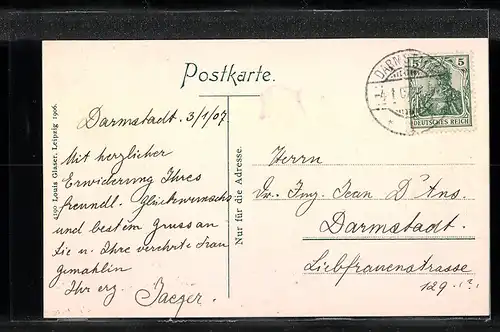 Postkarte.
Darmstadt. 3/1/07
Mit herzlicher
Erwiderung Ihres
freundl. Glückwunschs
und bestem Gruss an
Sie u. Ihre verehrte Frau
gemahlin
Ihr erg. Jaeger.
4199 Louis Glaser, Leipzig 1906.
Nur für die Adresse.
5 5
DEUTSCHES REICH
DARMST
Herrn
Dr. Ing. Jean D'Ans.
Darmstadt.
Liebfrauenstrasse
129